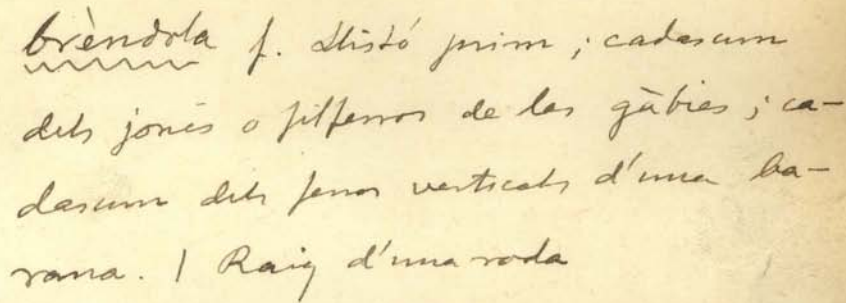 brèndola f. Llistó prim; cadascun
dels joncs o filferros de les gàbies; ca-
dascun dels ferros verticals d'una ba-
rana. | Raig d'una roda